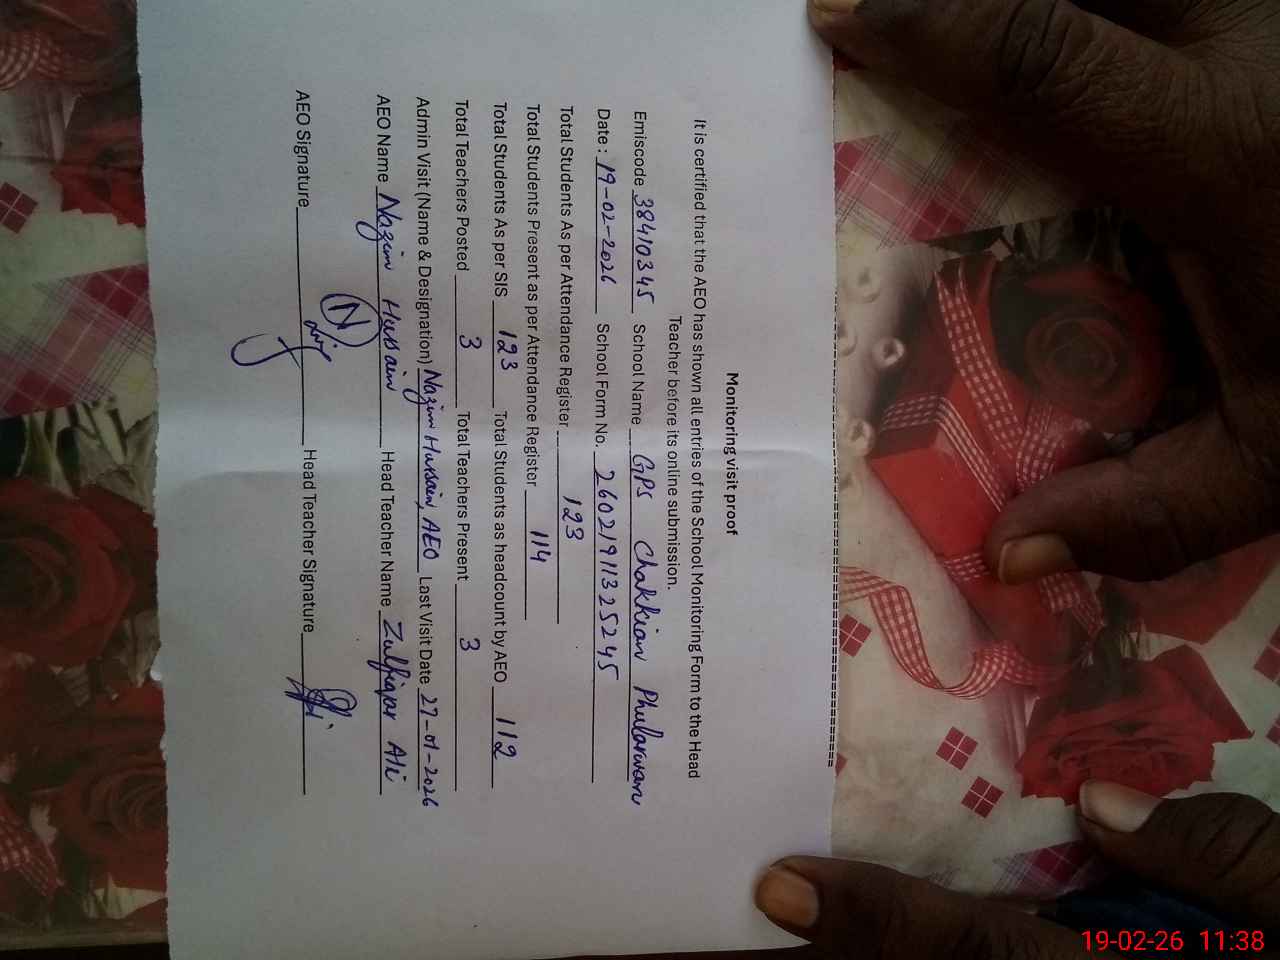 Monitoring visit proof
It is certified that the AEO has shown all entries of the School Monitoring Form to the Head
Teacher before its online submission.
Emiscode 38410345 School Name GPS Chakkian Phularwan
Date: 19-02-2026 School Form No. 26021911325245
Total Students As per Attendance Register 123
Total Students Present as per Attendance Register 114
Total Students As per SIS 123 Total Students as headcount by AEO 112
Total Teachers Posted 3 Total Teachers Present 3
Admin Visit (Name & Designation) Nazim Hussain, AEO Last Visit Date 27-01-2026
AEO Name Nazim Hussain Head Teacher Name Zulfiqar Ali
AEO Signature Head Teacher Signature
19-02-26 11:38